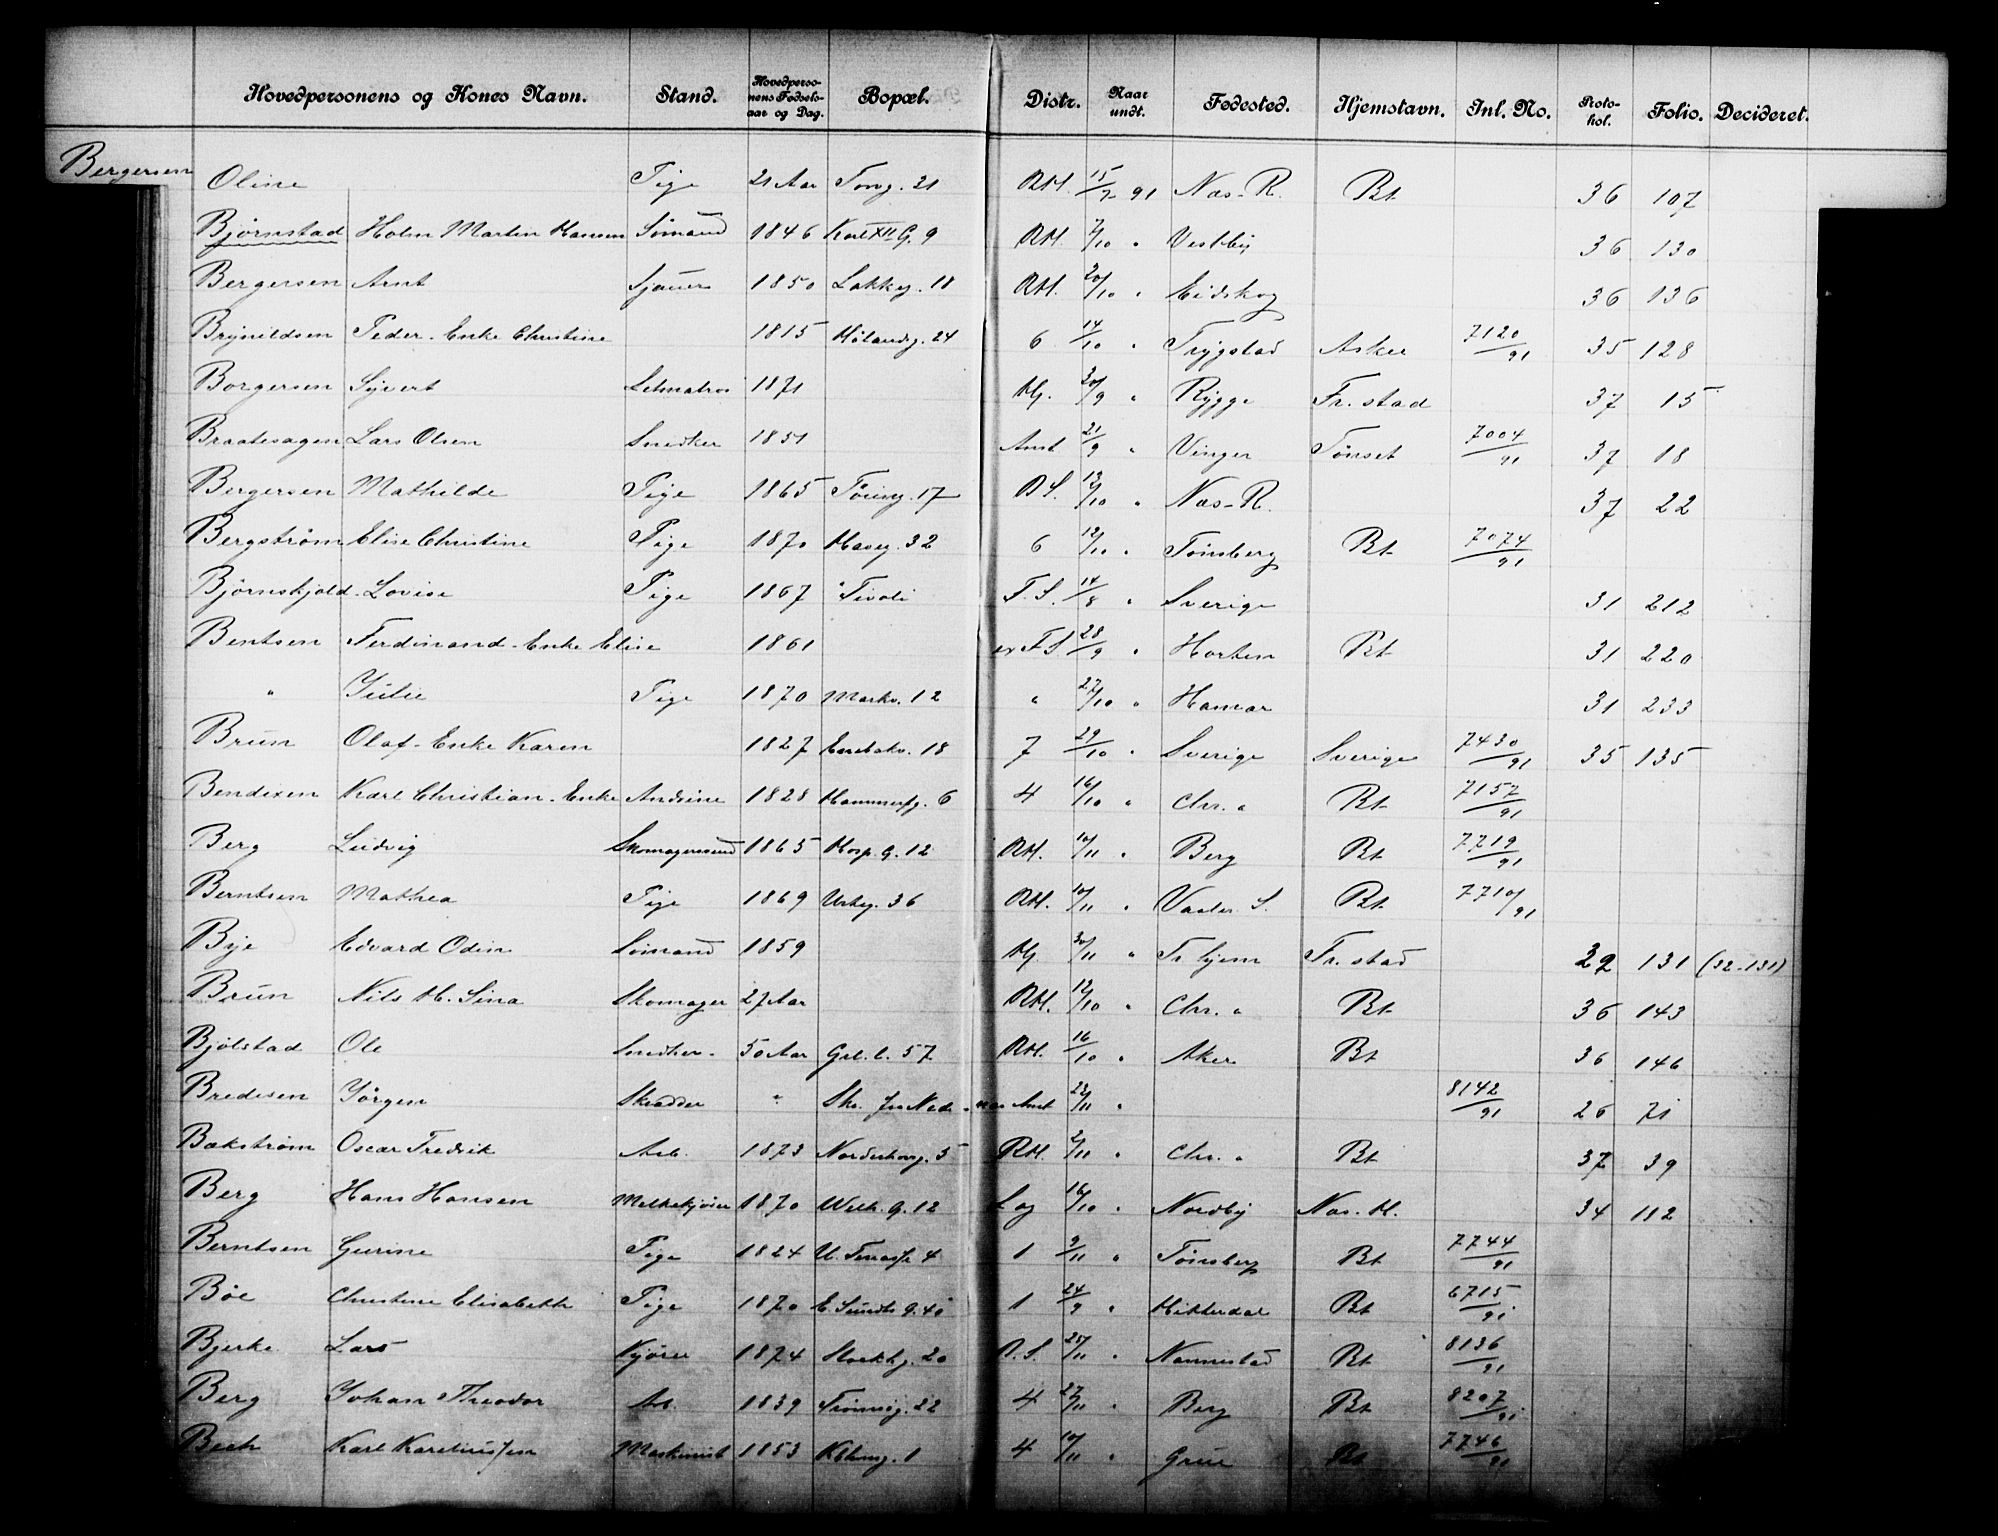 Hovedpersonens og Kones Navn. Stand. Hovedpersonens Fødselsaar og Dag. Bopæl. Distr. Naar undt. Fødested. Hjemstavn. Inl. No. Protokol. Folio. Decideret.
Bergersen Oline Pige 21 Aar Torvg. 21 RH. 15/7 91 Næs-R. Bt 36 107
Bjørnstad Holm Martin Hansen Sømand 1846 Karl XII G. 9 RH. 7/10 " Vestby 36 130
Bergersen Arnt Sjauer 1850 Lakkeg. 18 RH. 20/10 " Eidskog 36 136
Brynildsen Peder-Enke Christine 1815 Hølandsg. 24 6 14/10 " Trygstad Asker 7120/91 35 128
Borgersen Syvert Letmatros 1871 Hj. 30/9 " Rygge Fr.stad 37 15
Braatesagen Lars Olsen Snedker 1851 Amt 21/9 " Vinger Tønset 7004/91 37 18
Bergersen Mathilde Pige 1865 17 12/10 " Næs-R. 37 22
Bergstrøm Elise Christine Pige 1870 32 6 12/10 " Tønsberg Bt 7074/91
Bjørnskjold Lovise Pige 1867 "Tivoli F.S. 14/8 " Sverige 31 212
Bentsen Ferdinand-Enke Elise 1861 F.S. 28/9 " Horten Bt 31 220
" Julie Pige 1870 Markv. 12 " 27/10 " Hamar 31 233
Brun Olaf-Enke Karen 1827 Enebakv. 18 7 29/10 " Sverige Sverige 7430/91 35 135
Bendixen Karl Christian-Enke Andrine 1828 Hammerfg. 6 4 16/10 " Chr. " Bt 7157/91
Berg Ludvig Skomagersvend 1865 Hosp. G. 12 RH. 10/11 " Berg Bt 7719/91
Berntsen Mathea Pige 1869 Urteg. 36 RH. 10/11 " Vaaler S. Bt 7710/91
Bye Edvard Odin Sømand 1859 Hj. 30/11 " Tr.hjem Fr.stad 32 131 (32-131)
Brun Nils H. Sina Skomager 27 Aar RH. 12/10 " Chr. " Bt 36 143
Bjølstad Ole Snedker 50 Aar Grl. l. 57 RH. 16/10 " Aker Bt 36 146
Bredesen Jørgen Skrædder " Amt 22/11 " 8142/91 26 71
Bækstrøm Oscar Fredrik Arb. 1873 Norderhovg. 5 RH. 2/11 " Chr. " Bt 37 39
Berg Hans Hansen Melkekjører 1870 Welh. G. 12 Log 16/10 " Nordby Næs. H. 34 112
Berntsen Gurine Pige 1824 U. 4 1 9/11 " Tønsberg Bt 7744/91
Bøe Christine Elisabeth Pige 1870 E. Sundts G. 40 1 24/9 " Hitterdal Bt 6715/91
Bjerke Lars Kjører 1874 Storkg. 20 25/11 " Nannestad Bt 8136/91
Berg Johan Theodor Arb. 1839 22 4 27/11 " Berg Bt 8207/91
Bech Karl Kareliussen Maskinist 1853 1 4 10/11 " Grue Bt 7746/91